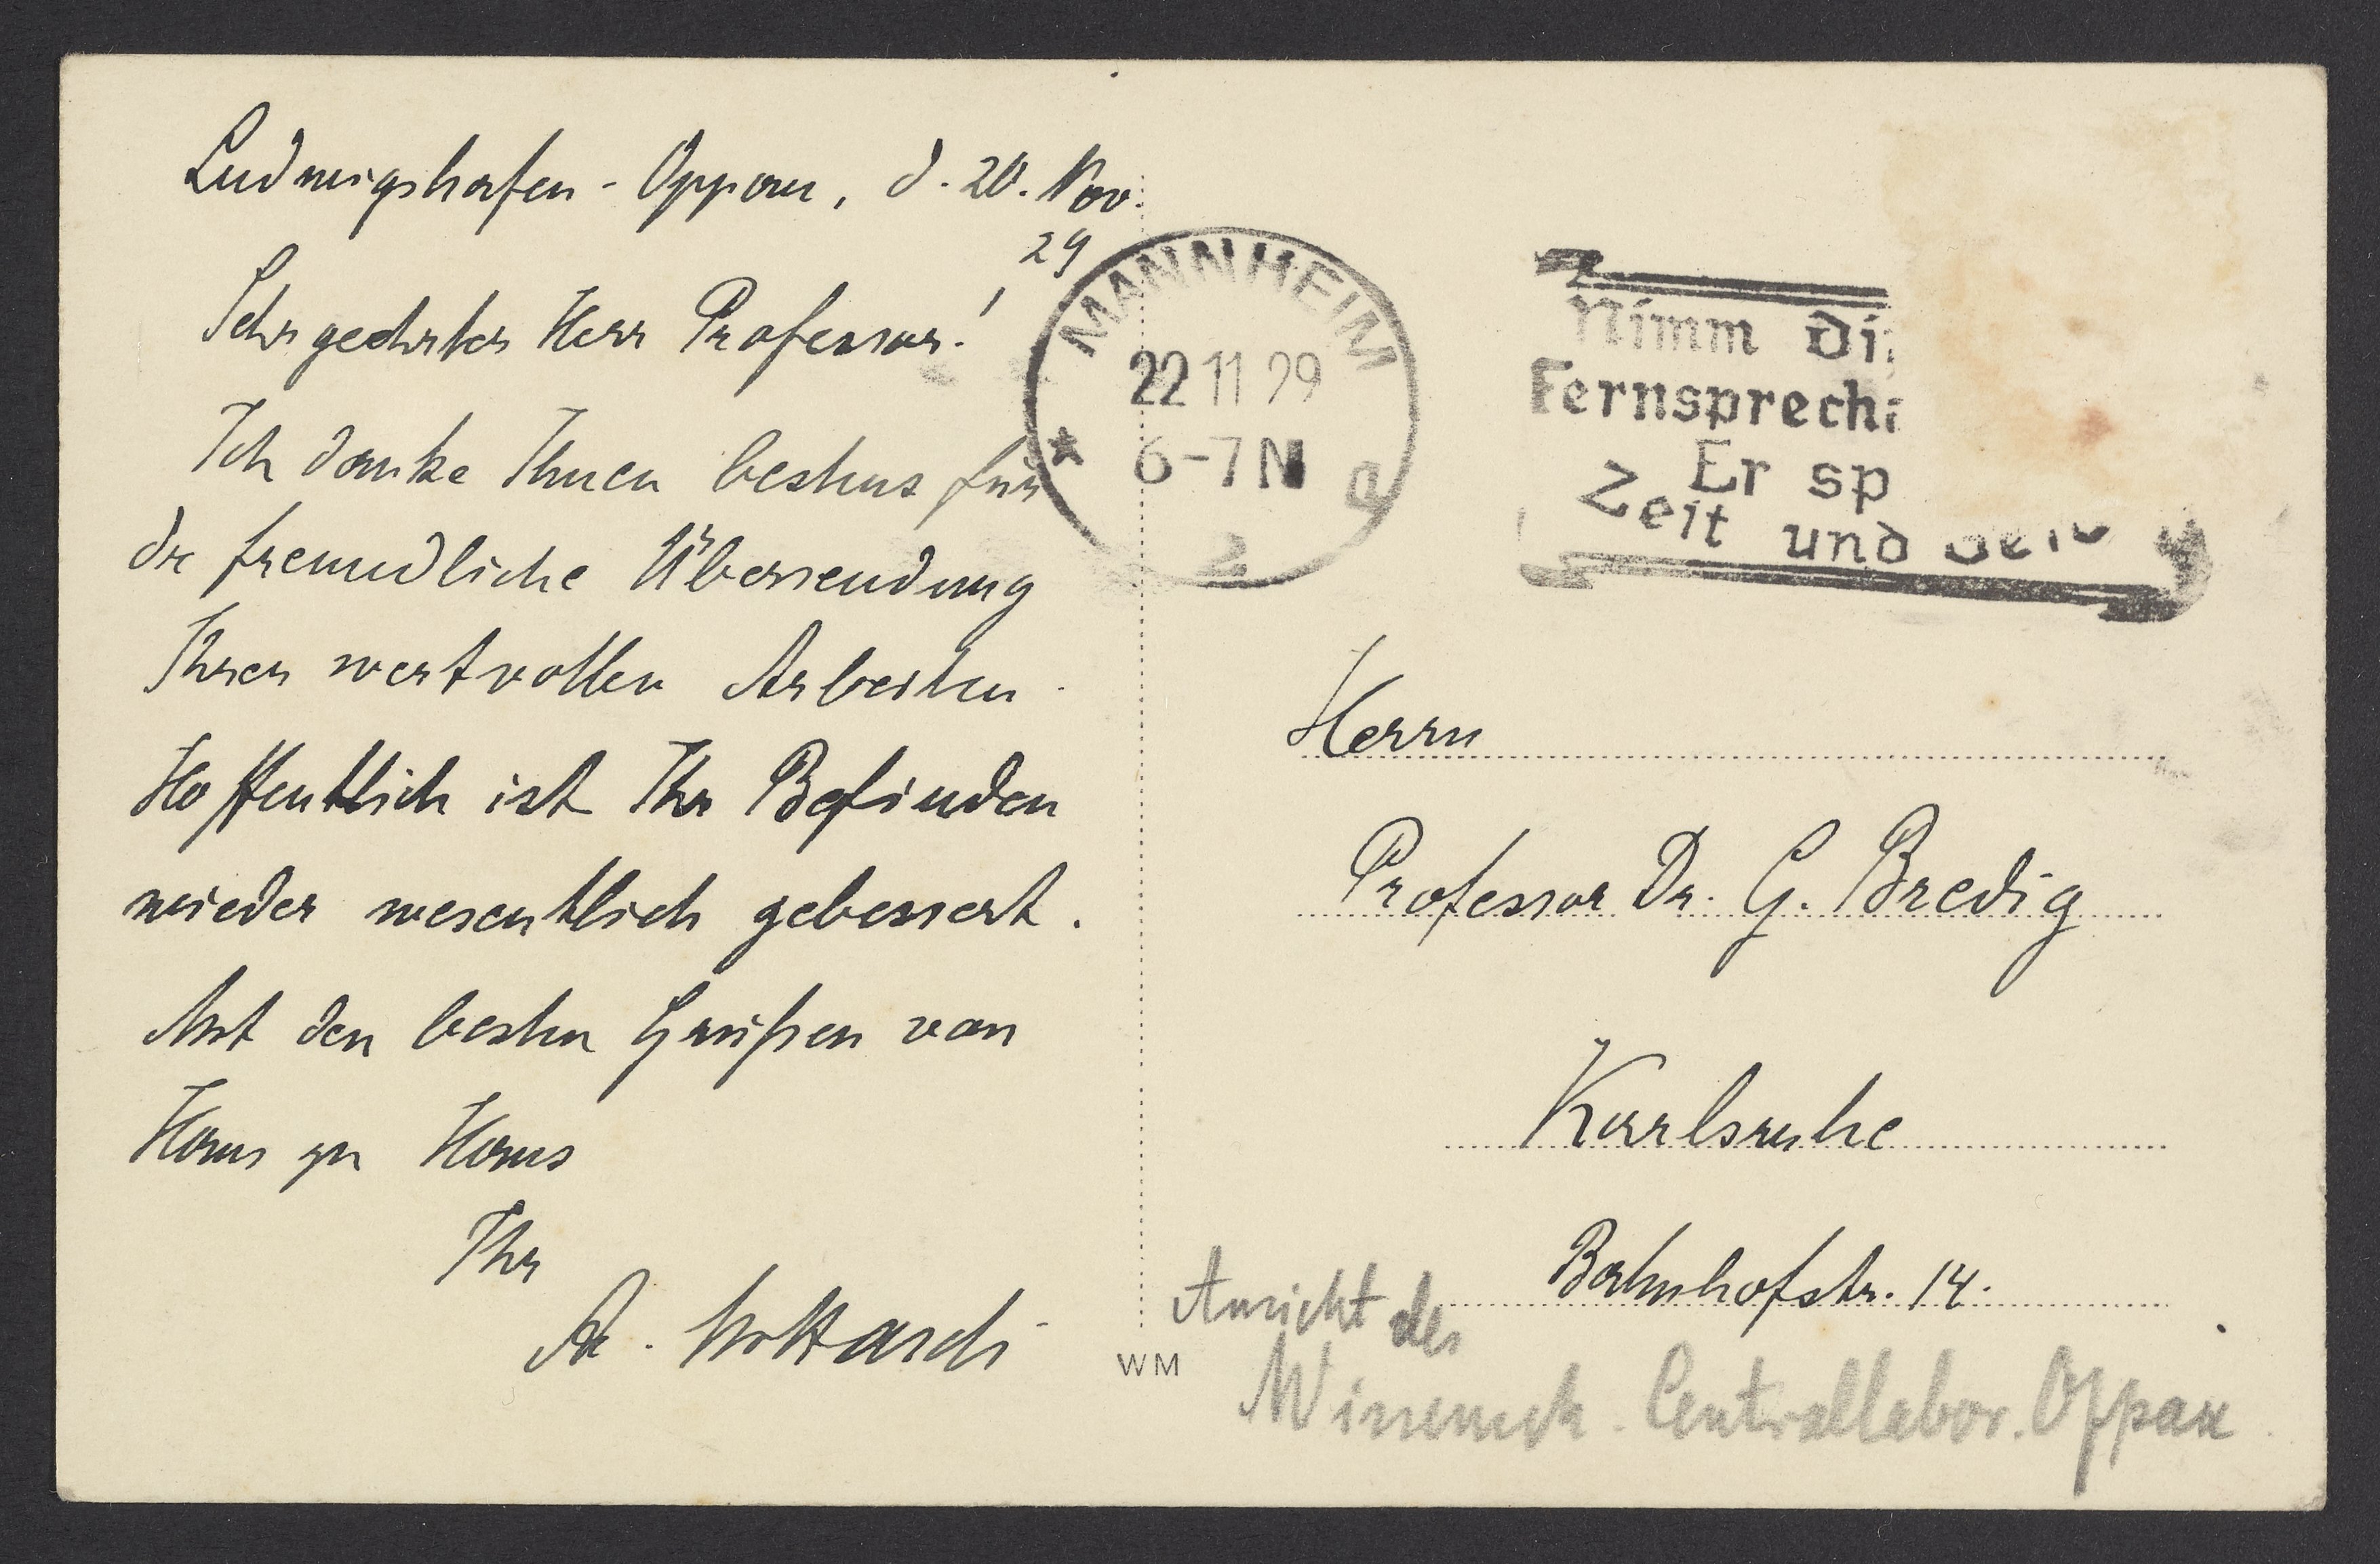 Ludwigshafen-Oppau, d. 20. Nov.
29
Sehr geehrter Herr Professor!
Ich danke Ihnen bestens für
die freundliche Übersendung
Ihrer wertvollen Arbeiten.
Hoffentlich ist Ihr Befinden
wieder wesentlich gebessert.
Mit den besten Grüßen von
Haus zu Haus
Ihr
A. Mittasch
MANNHEIM
22 11 29
6-7 N
* 2
Nimm di
Fernspreche
Er sp
Zeit und Geld
Herrn
Professor Dr. G. Bredig
Karlsruhe
Bahnhofstr. 14.
WM
Ansicht des
Wissensch. Centrallabor. Oppau